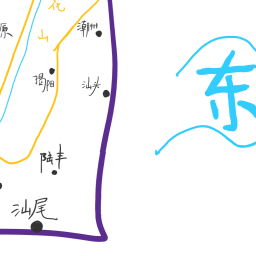 化
山
源
潮州
揭阳
汕头
陆丰
汕尾
东